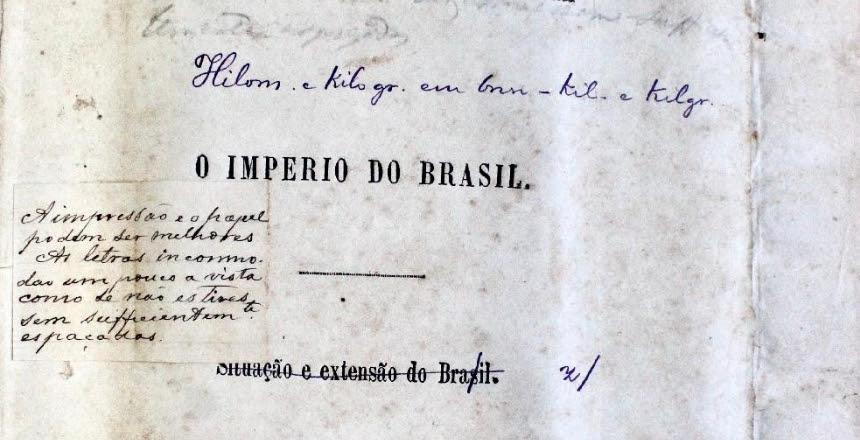 Kilom. e Kilogr. em bnn – Kil. e Kilgr.
O IMPERIO DO BRASIL.
A impressão e o papel
podem ser melhores
As letras incommo-
dão um pouco a vista
como se não estives
sem sufficientemte.
espaçadas.
Situação e extensão do Brasil. z/